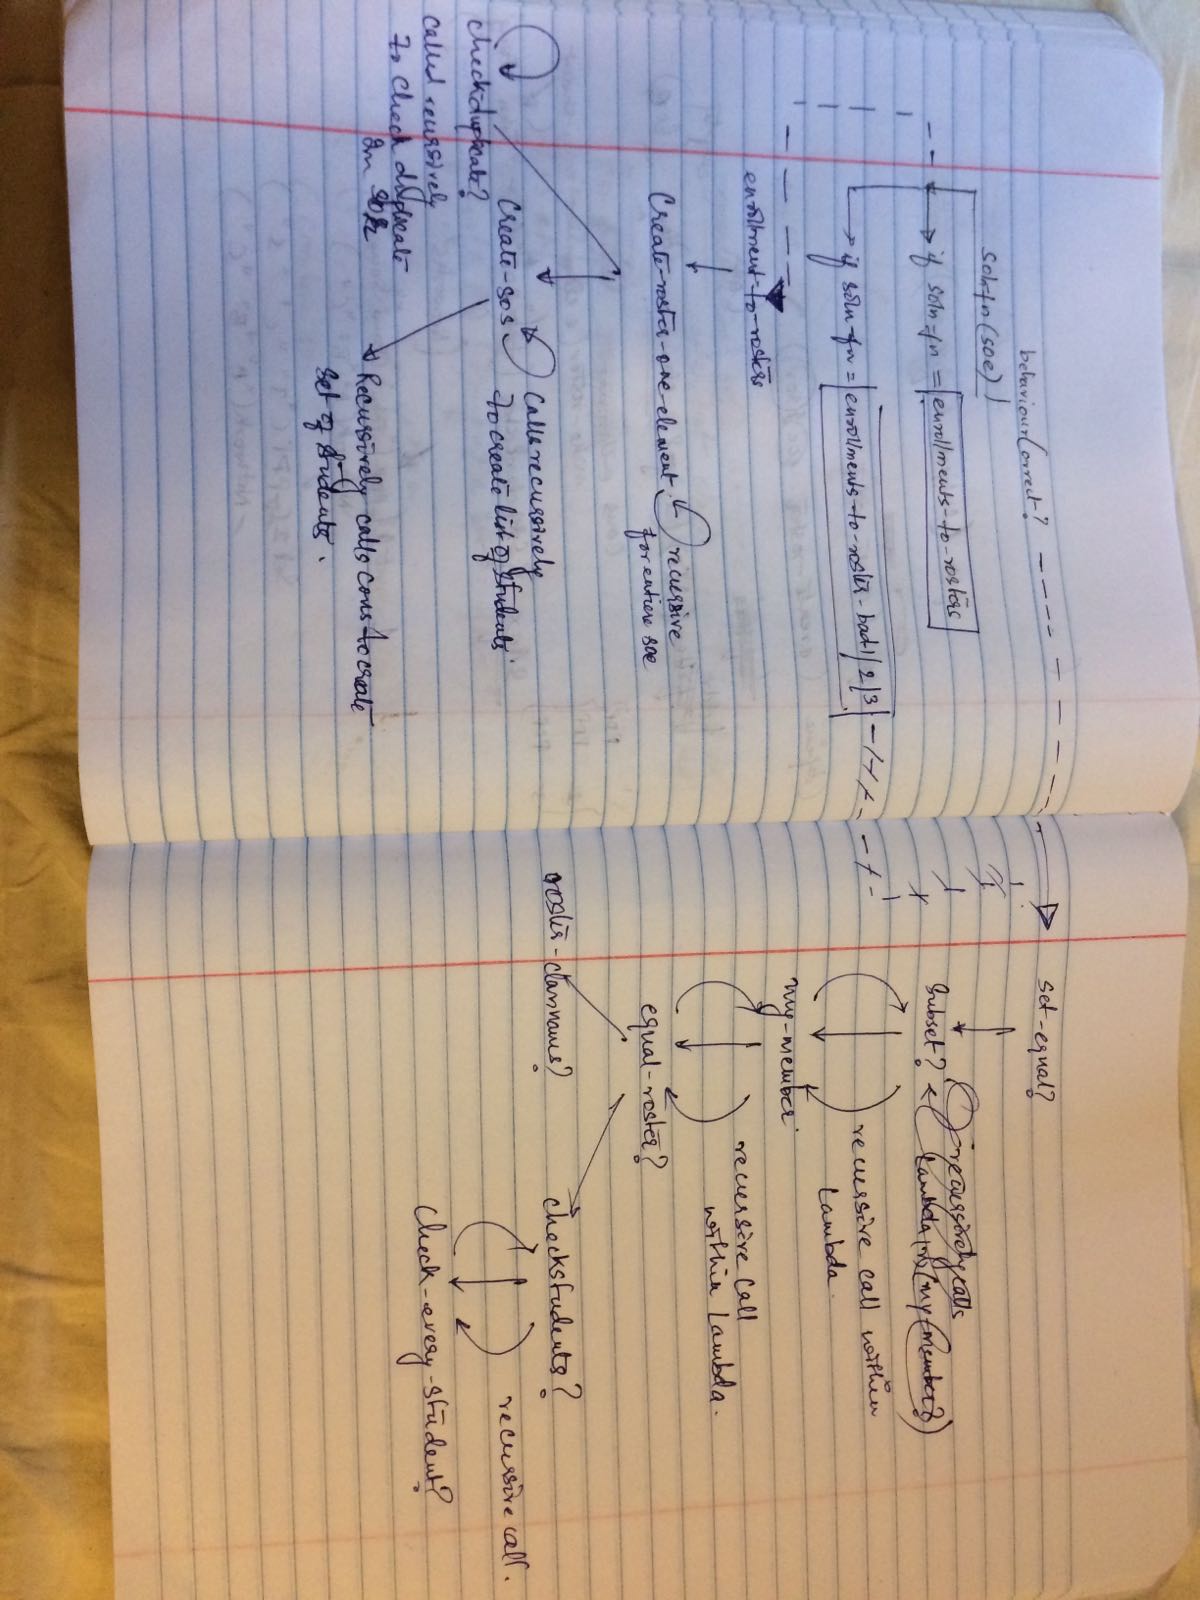 behaviourCorrect?
soln-fn(soe)
if soln-fn = enrollments-to-rosters
if soln-fn = enrollments-to-roster-bad1/2/3
enrollment-to-rosters
Create-roster-one-element
recursive
for entire soe
Calls recursively
Create-sos
to create list of students.
checkduplicate?
called recursively
to check duplicate
in
Recursively calls cons to create
set of students.
set-equal?
recursively calls
Subset?
Lambda(n)(my-member?)
recursive call within
Lambda.
my-member.
recursive call
within Lambda.
equal-roster?
roster-classname?
checkstudents?
recursive call.
check-every-student?